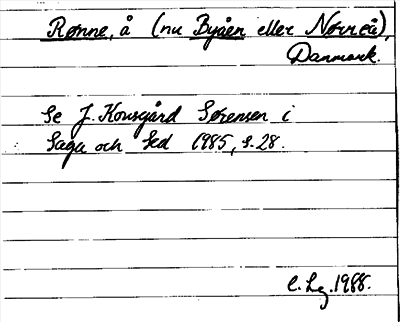 Rønne, å (nu Byåen eller Nørreå),
Danmark.
Se J. Kousgård Sørensen i
Saga och Sed 1985, s. 28.
C. Lg. 1988.